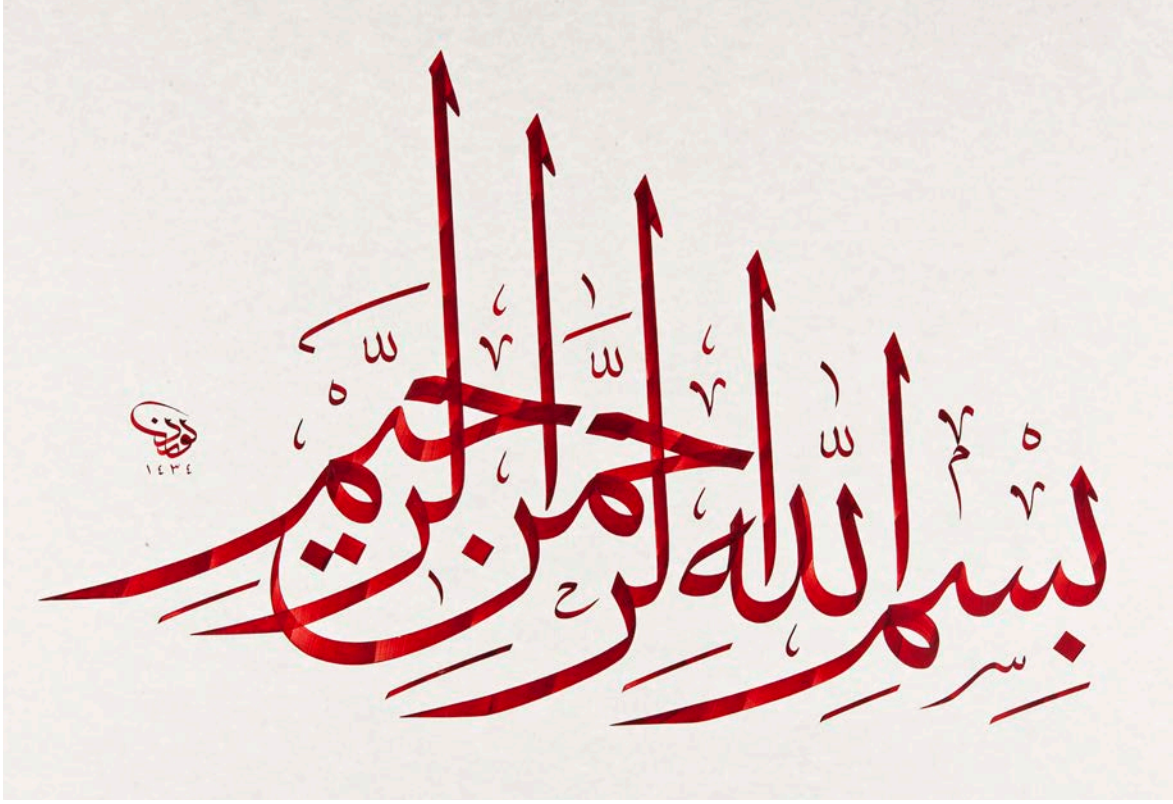 بِسْمِ اللّٰهِ الرَّحْمٰنِ الرَّحِيمِ
١٤٣٤